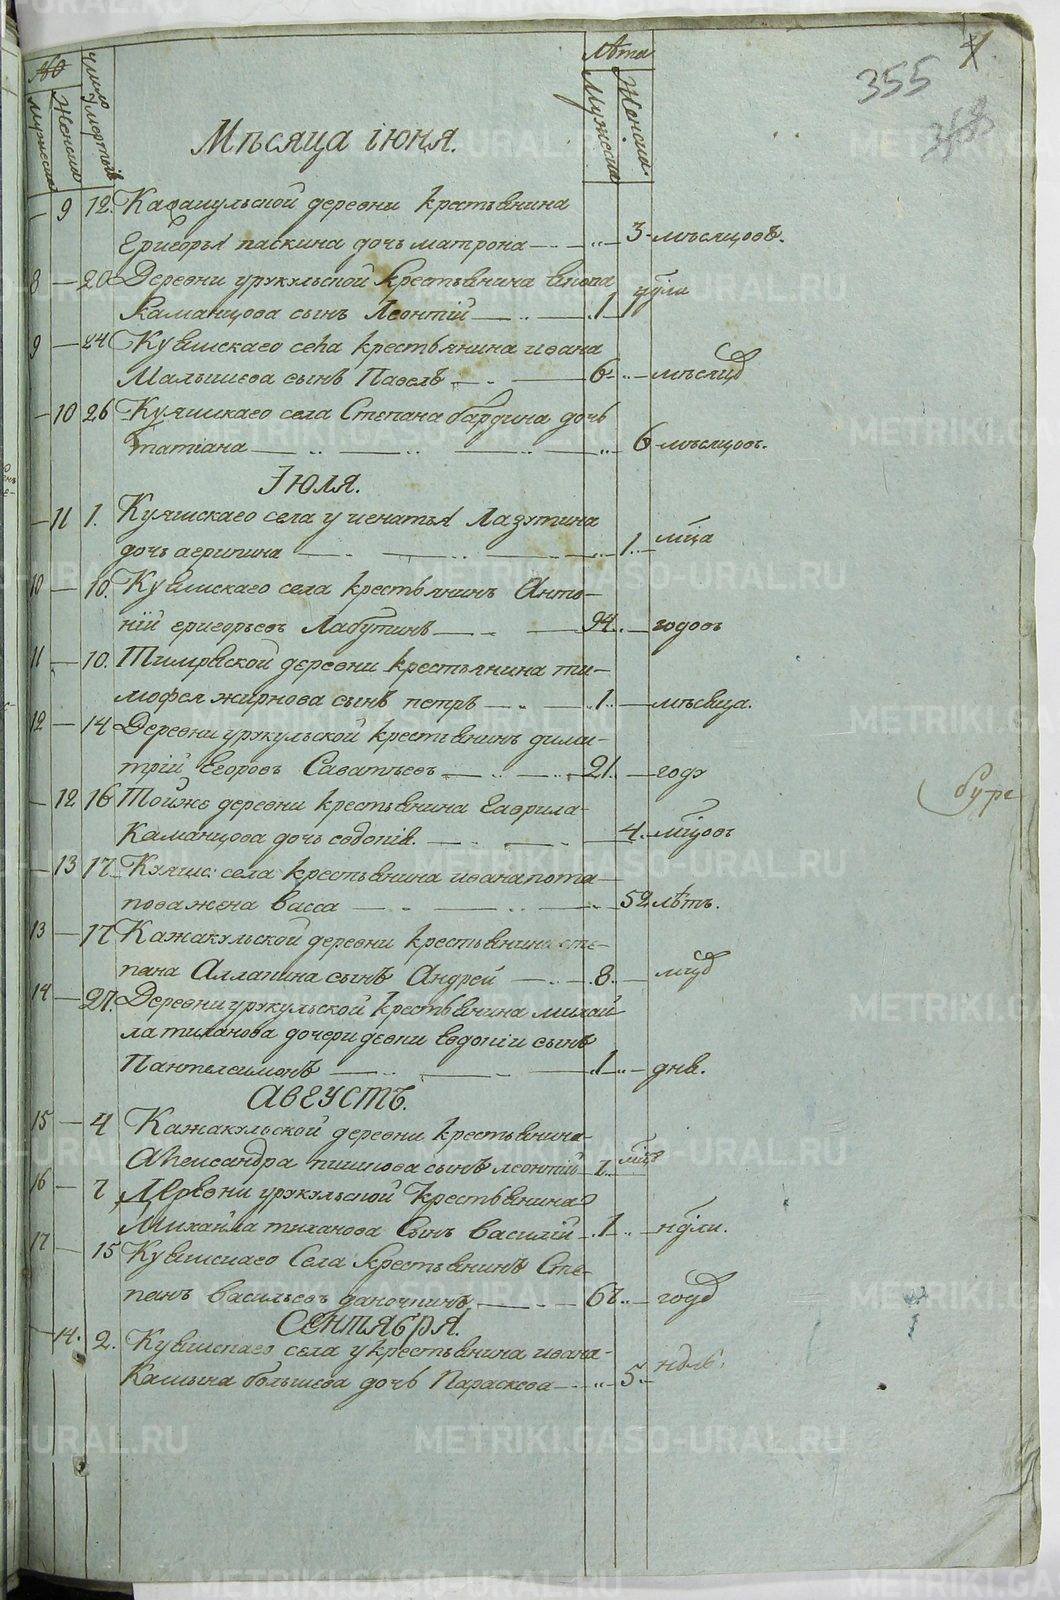 355
№
число умерших
Лѣта
мужеска
женска
мужеска
женска
Мѣсяца іюня.
9 12. деревни крестьянина
Григорья паскина дочь матрона 3 мѣсяцовъ.
8 20 Деревни урукульской крестьянина
Каманцова сынъ Леонтій 1
9 24 Куяшскаго села крестьянина ивана
Малышева сынъ Павелъ 6
10 26 Куяшкаго села Степана бардина дочь
татіана 6 мѣсяцовъ.
Іюля.
11 1. Куяшскаго села у игнатья Лазутина
дочь агрипина 1. мца
10 10. Куяшскаго села крестьянинъ Анто-
ній григорьевъ Лабутинъ 94 годовъ
11 10. деревни крестьянина ти-
мофея жирнова сынъ петръ 1 мѣсяца.
12 14 Деревни урукульской крестьянинъ дими-
трій Егоровъ Саватѣевъ 21. году
12 16 Тойже деревни крестьянина гаврила
Каманцова дочь евдокія. 4. мцовъ
13 17 Куяшс: села крестьянина ивана пота-
пова жена васса 52 лѣтъ.
13 17 Кажакульской деревни крестьянина сте-
пана Аллапина сынъ Андрей 8.
14 27. Деревни урукульской крестьянина михай
ла тиханова дочери девки евдокіи сынъ
Пантелеимонъ 1 дня.
Августъ.
15 4 Кажакульской деревни крестьянина
Александра сынъ леонтій
16 7 Деревни урукульской Крестьянина
Михайла тиханова Сынъ василій 1 нѣли.
17 15 Куяшскаго Села Крестьянинъ Сте-
панъ васильевъ
Сентября.
14. 2. Куяшскаго села у крестьянина ивана
дочь Параскева 5
METRIKI.GASO-URAL.RU